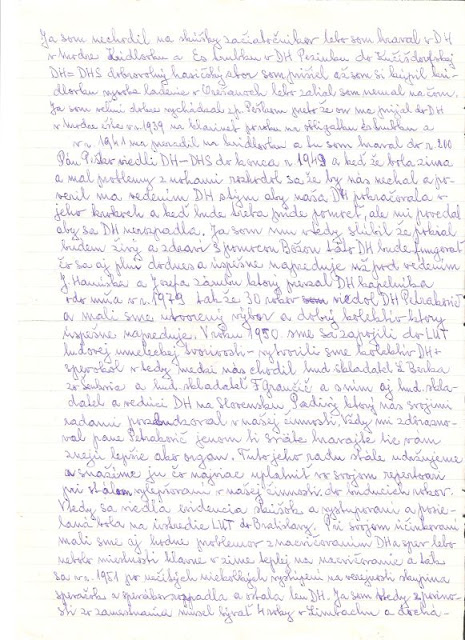 Ja som nechodil na skúšky začiatočníkov lebo som hraval v DH
v Modre Krídlovku a Es trubku v DH Pezinku do
DH= DHS dobrovoľný hasičský zbor som prišiel až som si kúpil krí-
dlovku vysoké ladenie v lebo zatiaľ som nemal na čom.
Ja som veľmi dobre vychádzal z p. Peškom pretože on ma prijal do DH
v Modre ešte v r. 1939 na klarinet potom na obligatku Es trubku a
v r. 1941 ma preradil na krídlovku a tu som hraval do r. 200
Pán Pešek viedli DH-DHS do konca r. 1949 a keď že bola zima
a mal problémy z nohami rozhodol sa že by nás nechal a po-
veril ma vedením DH stým aby naša DH pokračovala v
jeho krokoch a keď bude treba príde pomocť, ale mi povedal
aby sa DH nerozpadla. Ja som mu vtedy sľúbil že pokiaľ
budem živý a zdravý s pomocou Božou táto DH bude fungovať
čo sa aj plní dodnes a úspešne napreduje už pod vedením
J. Hanuska a Jozefa ktorý prevzal DH kapelníka
odo mňa v r. 1979 takže 30 rokov viedol DH Petrakovič
a mali sme utvorený výbor a dobrý kolektív ktorý
úspešne napreduje. V roku 1950 sme sa zapojili do LUT
ľudovej umeleckej tvorivosti- vytvorili sme kolektív DH+
spevokol vtedy medzi nás chodil hud. skladateľ
zo Senkvíc a hud skladateľ a sním aj hud skla-
dateľ a vedúci DH na Slovensku ktorý nás svojimi
radami povzbudzoval v našej činnosti, Vždy mi zdôrazno-
val pane Petrakovič jenom ti hrajte tie vám
znejú lepšie ako organ. Tuto jeho radu stále udržujeme
a snažíme ju čo najviac uplatniť vo svojom repertoári
pri stálom vylepšovaní v našej činnosti do budúcich rokov.
Vtedy sa viedla evidencia skúšok a vystupovaní a posie-
laná bola na LUT do Bratislavy. Pri svojom účinkovaní
mali sme aj hodne problémov z nacvičovaním DH a spev lebo
nebolo miestnosti hlavne v zime teplej na nacvičovanie a tak
sa v r. 1951 po určitých niekoľkých vystúpení na verejnosti skupina
speváčok a spevákov rozpadla a ostala len DH. Ja som vtedy z povinno-
sti zo zamestnania musel bývať 4 roky v Limbachu a dochá-